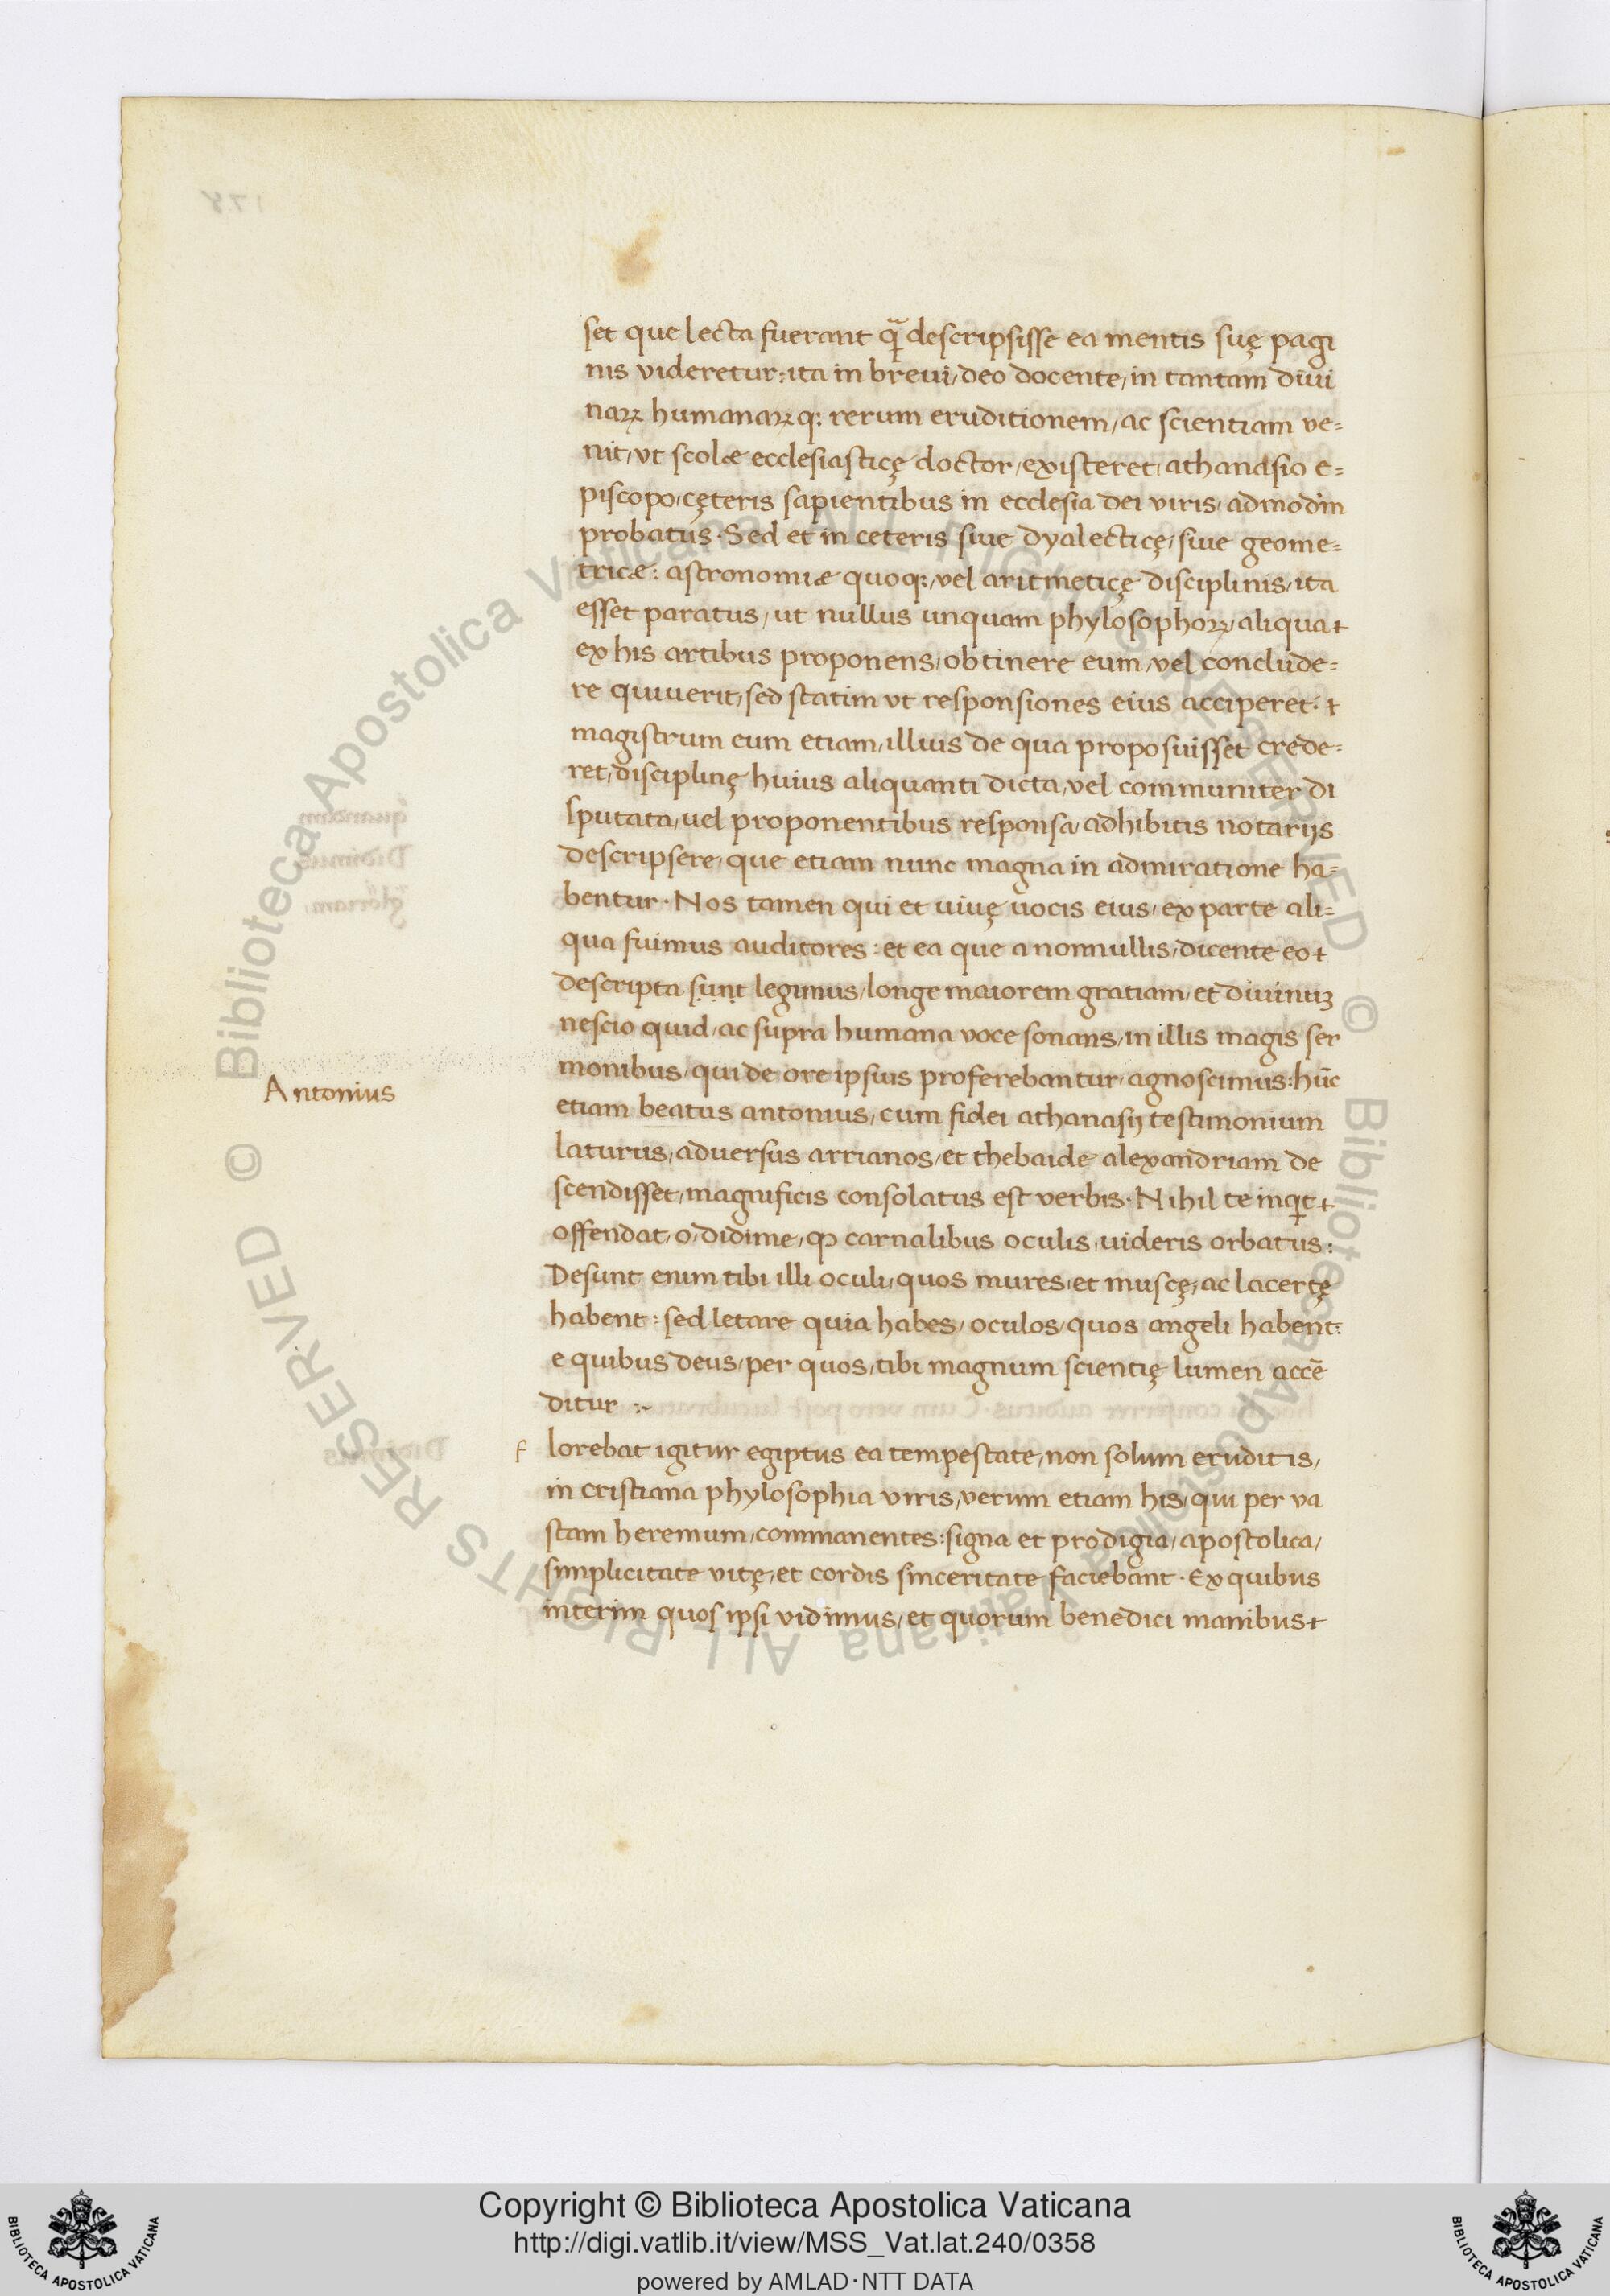 set que lecta fuerant qͣ descripsisse ea mentis suę pagi
nis videretur: ita in brevi, deo docente, in tantam divi
naꝝ humanaꝝq; rerum eruditionem, ac scientiam ve=
nit, vt scolæ ecclesiasticę doctor, existeret, athanasio e=
piscopo, cęteris sapientibus in ecclesia dei viris, admodm̄
probatus. Sed et in ceteris siue dyalecticę, siue geome=
tricæ: astronomiæ quoq;, vel aritmeticę disciplinis, ita
esset paratus, ut nullus unquam phylosophoꝝ, aliqua
ex his artibus proponens, obtinere eum, vel conclude=
re quiuerit, sed statim vt responsiones eius acciperet.
magistrum eum etiam, illius de qua proposuisset crede=
ret, disciplinę huius aliquanti dicta, vel communiter di
sputata, uel proponentibus responsa, adhibitis notarijs
descripsere, que etiam nunc magna in admiratione ha=
bentur. Nos tamen qui et uiuę uocis eius, ex parte ali=
qua fuimus auditores: et ea que a nonnullis, dicente eo
descripta sunt legimus, longe maiorem gratiam, et diuinuꝫ
nescio quid, ac supra humana voce sonans, in illis magis ser
monibus, qui de ore ipsius proferebantur, agnoscimus: hūc
Antonius
etiam beatus antonius, cum fidei athanasij testimonium
laturus, aduersus arrianos, et thebaide alexandriam de
scendisset, magnificis consolatus est verbis. Nihil te inqͥt
offendat, o, didime, ꝙ carnalibus oculis, uideris orbatus:
Desunt enim tibi illi oculi, quos mures, et muscę, ac lacertę
habent: sed letare quia habes, oculos, quos angeli habent:
e quibus deus, per quos, tibi magnum scientię lumen accē
ditur :~
f lorebat igitur egiptus ea tempestate, non solum eruditis,
in cristiana phylosophia viris, verum etiam his, qui per va
stam heremum, commanentes: signa et prodigia, apostolica,
simplicitate vitę, et cordis sinceritate faciebant. Ex quibus
interim quos ipsi vidimus, et quorum benedici manibus
© Biblioteca Apostolica Vaticana ALL RIGHTS RESERVED © Biblioteca Apostolica Vaticana ALL RIGHTS RESERVED
Copyright © Biblioteca Apostolica Vaticana
http://digi.vatlib.it/view/MSS_Vat.lat.240/0358
powered by AMLAD·NTT DATA
BIBLIOTECA APOSTOLICA VATICANA
BIBLIOTECA APOSTOLICA VATICANA